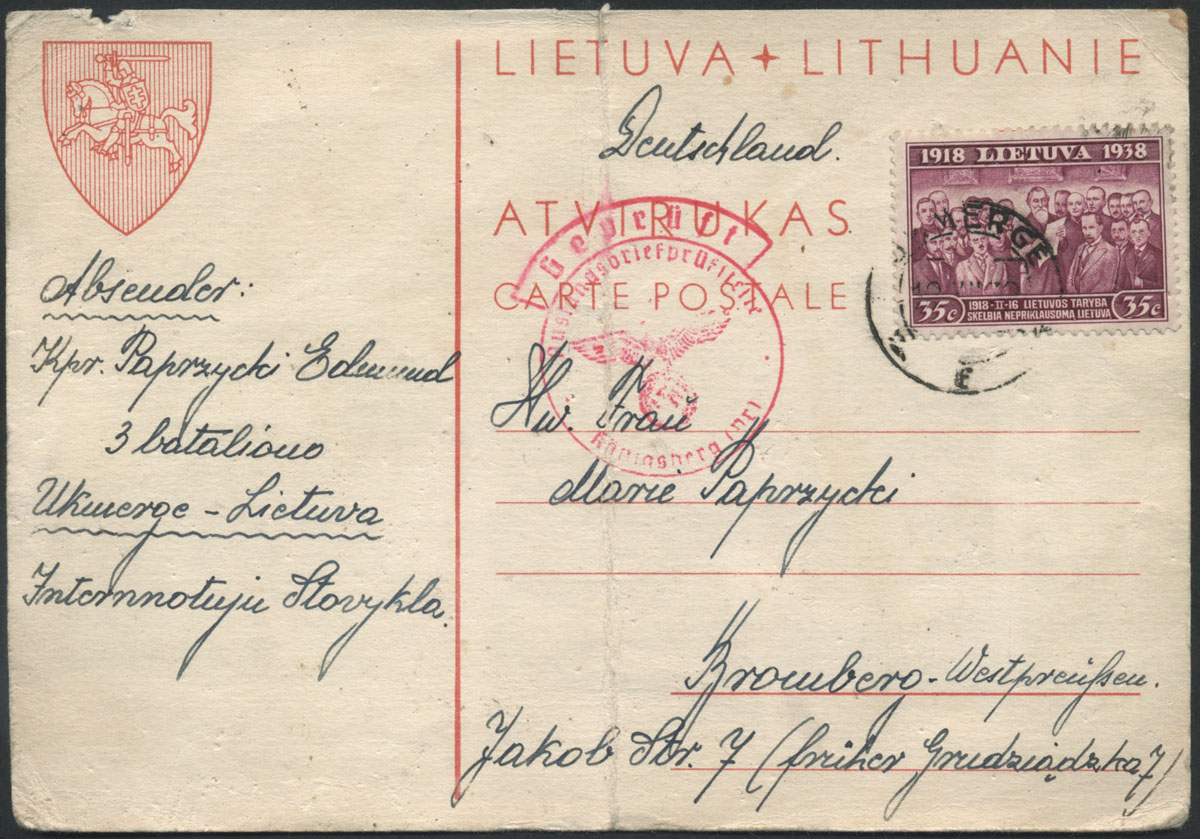 LIETUVA + LITHUANIE
Deutschland.
1918 LIETUVA 1938
35c 1918-II-16 LIETUVOS TARYBA 35c
SKELBIA NEPRIKLAUSOMĄ LIETUVA
MERGE
ATVIRUKAS
CARTE POSTALE
Geprüft
Auslandsbriefprüfstelle
Königsberg (Pr)
Absender:
Kpr. Paprzycki Edmund
3 bataliono
Ukmerge - Lietuva
Internnotuju Stovykla.
Frau
Marie Paprzycki
Bromberg-Westpreußen.
Jakob Str. 7 (früher Grudziądzka 7)